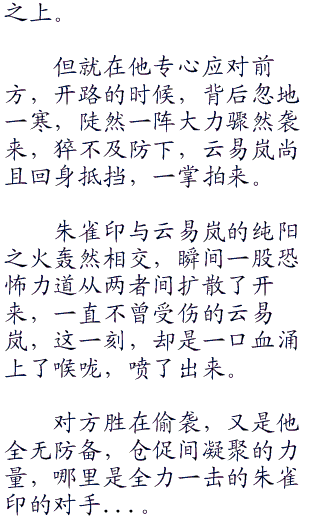 之上。
但就在他专心应对前
方，开路的时候，背后忽地
一寒，陡然一阵大力骤然袭
来，猝不及防下，云易岚尚
且回身抵挡，一掌拍来。
朱雀印与云易岚的纯阳
之火轰然相交，瞬间一股恐
怖力道从两者间扩散了开
来，一直不曾受伤的云易
岚，这一刻，却是一口血涌
上了喉咙，喷了出来。
对方胜在偷袭，又是他
全无防备，仓促间凝聚的力
量，哪里是全力一击的朱雀
印的对手...。